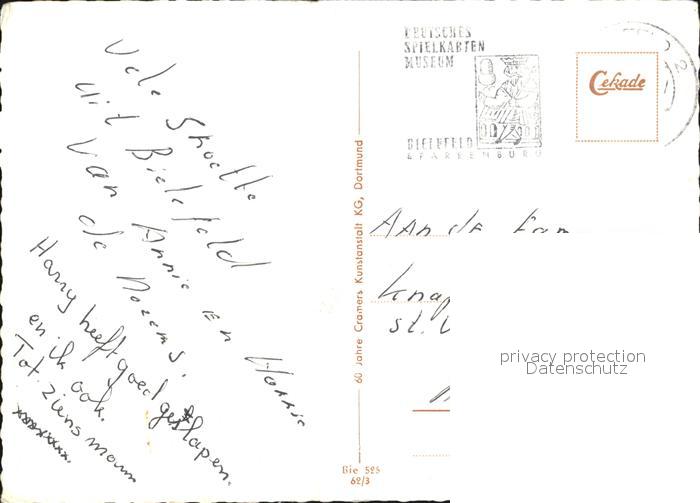 DEUTSCHES
SPIELKARTEN
MUSEUM
BIELEFELD
SPARRENBURG
Cekade
Vele
uit Bielefeld
van Annie en Harrie
de
Harry heeft goed geslapen.
en ik ook.
Tot ziens mam
xxxxxxxx.
60 Jahre Cramers Kunstanstalt KG, Dortmund
AAn de Fam
Knap
st.
privacy protection
Datenschutz
Bie 525
62/3